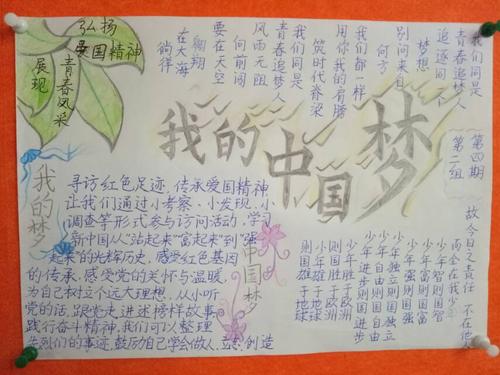 弘扬
爱国精神
青春风采
展现
我们同是
青春追梦人
追逐同一个
梦想
别问来自
何方
我们都一样
用你我的肩膀
筑时代脊梁
我们同是
青春追梦人
风雨无阻
向前闯
要在天空
翱翔
在大海
徜徉
我的中国梦
第四期
第二组
故今日之责任 不在他
而全在我少
少年智则国智
少年富则国富
少年强则国强
少年独立则国独立
少年自由则国自由
少年进步则国进步
少年胜于欧洲
则国胜于欧洲
少年雄于地球
则国雄于地球
我的梦
中国梦
寻访红色足迹,传承爱国精神
让我们通过小考察、小发现、小
调查等形式参与访问活动,学习
新中国从“站起来”“富起来”到“强
起来”的光辉历史,感受红色基因
的传承,感受党的关怀与温暖,
为自己树立个远大理想,从小听
党的话,跟党走,讲述榜样故事,
践行奋斗精神,我们可以整理
先烈们的事迹,鼓励自己学会做人、立志、创造